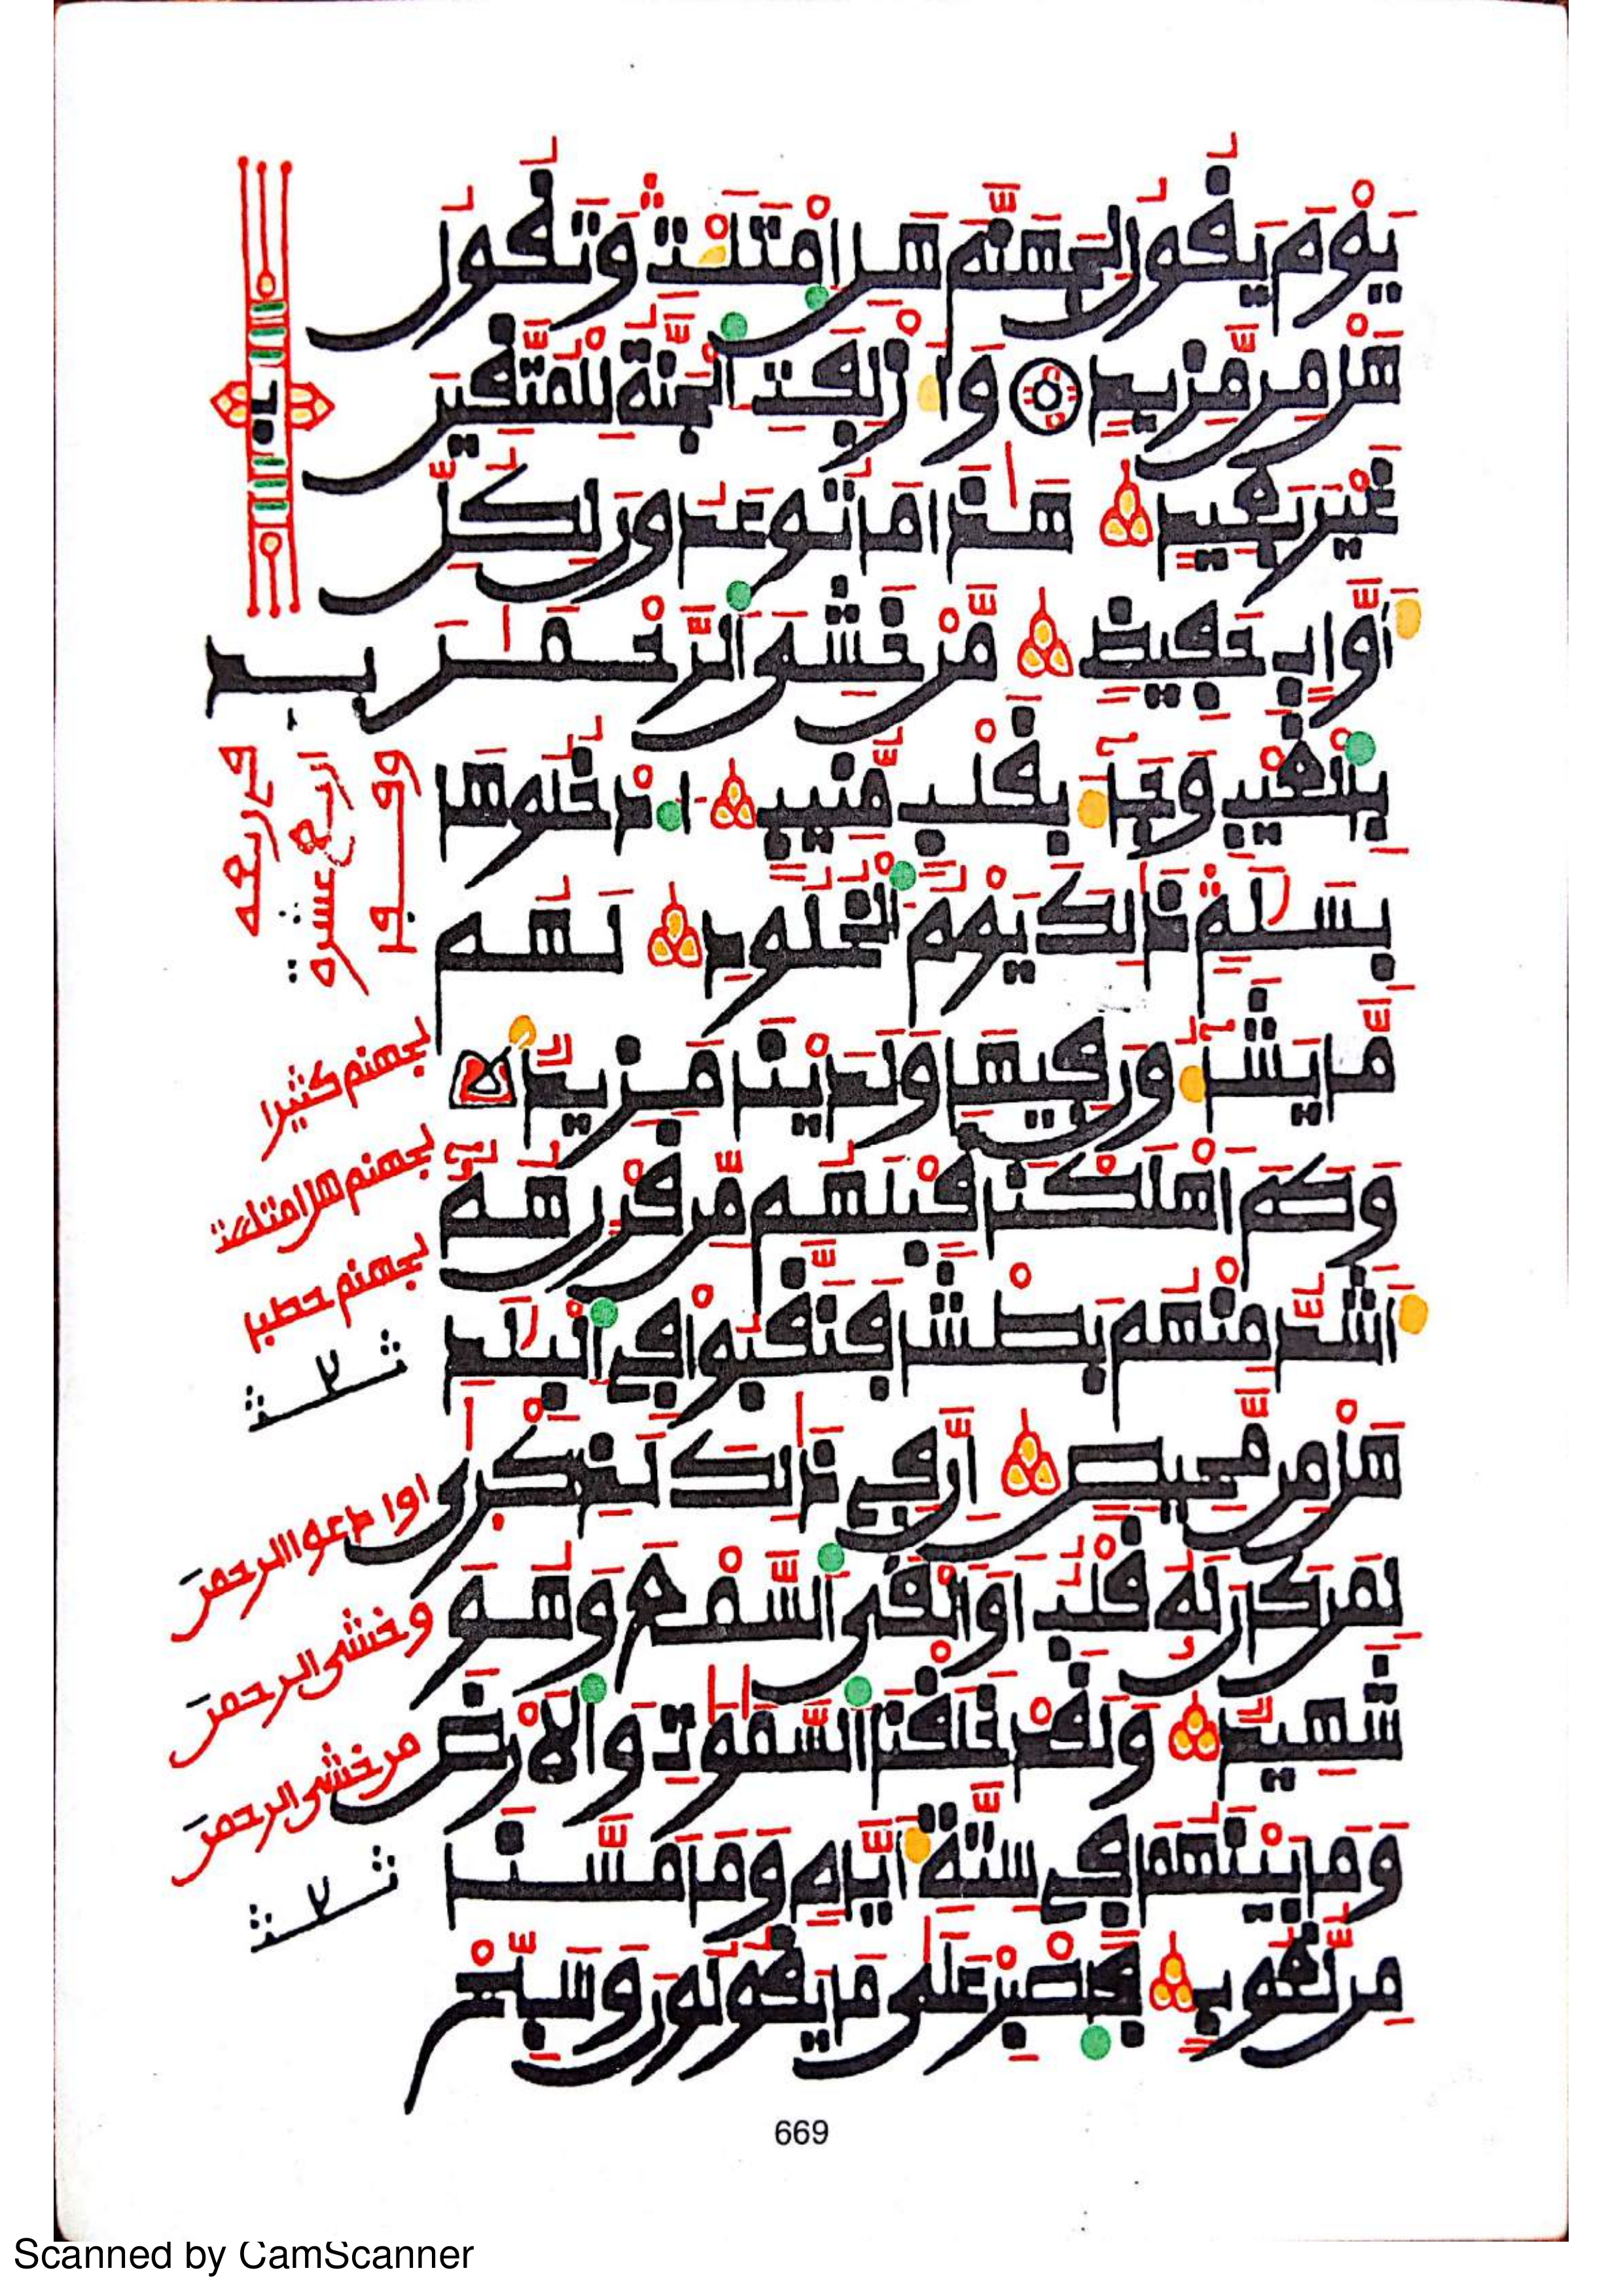 يَوْمَ يَقُولُ لِجَهَنَّمَ هَلِ اِمْتَلَأْتِ وَتَقُولُ
هَلْ مِن مَّزِيدٍ وَأُزْلِفَتِ اِلْجَنَّةُ لِلْمُتَّقِينَ
غَيْرَ بَعِيدٍ هَٰذَا مَا تُوعَدُونَ لِكُلِّ
أَوَّابٍ حَفِيظٍ مَّنْ خَشِيَ اَلرَّحْمَٰنَ
بِالْغَيْبِ وَجَآءَ بِقَلْبٍ مُّنِيبٍ اُدْخُلُوهَا
بِسَلَٰمٍ ذَٰلِكَ يَوْمُ اُلْخُلُودِ لَهُم
مَّا يَشَآءُونَ فِيهَا وَلَدَيْنَا مَزِيدٌ
وَكَمْ أَهْلَكْنَا قَبْلَهُم مِّن قَرْنٍ هُمُۥٓ
أَشَدُّ مِنْهُم بَطْشًا فَنَقَّبُوا فِي اِلْبِلَٰدِ
هَلْ مِن مَّحِيصٍ إِنَّ فِي ذَٰلِكَ لَذِكْرَىٰ
لِمَن كَانَ لَهُۥ قَلْبٌ أَوْ أَلْقَى اَلسَّمْعَ وَهُوَ
شَهِيدٌ وَلَقَدْ خَلَقْنَا اَلسَّمَٰوَٰتِ وَالْأَرْضَ
وَمَا بَيْنَهُمَا فِي سِتَّةِ أَيَّامٍ وَمَا مَسَّنَا
مِن لُّغُوبٍ فَاصْبِرْ عَلَىٰ مَا يَقُولُونَ وَسَبِّحْ
لجهنم كثيرا
لجهنم هل امتلات
لجهنم حطبا
او ادعوا الرحمن
وخشي الرحمن
من خشي الرحمن
669
Scanned by CamScanner